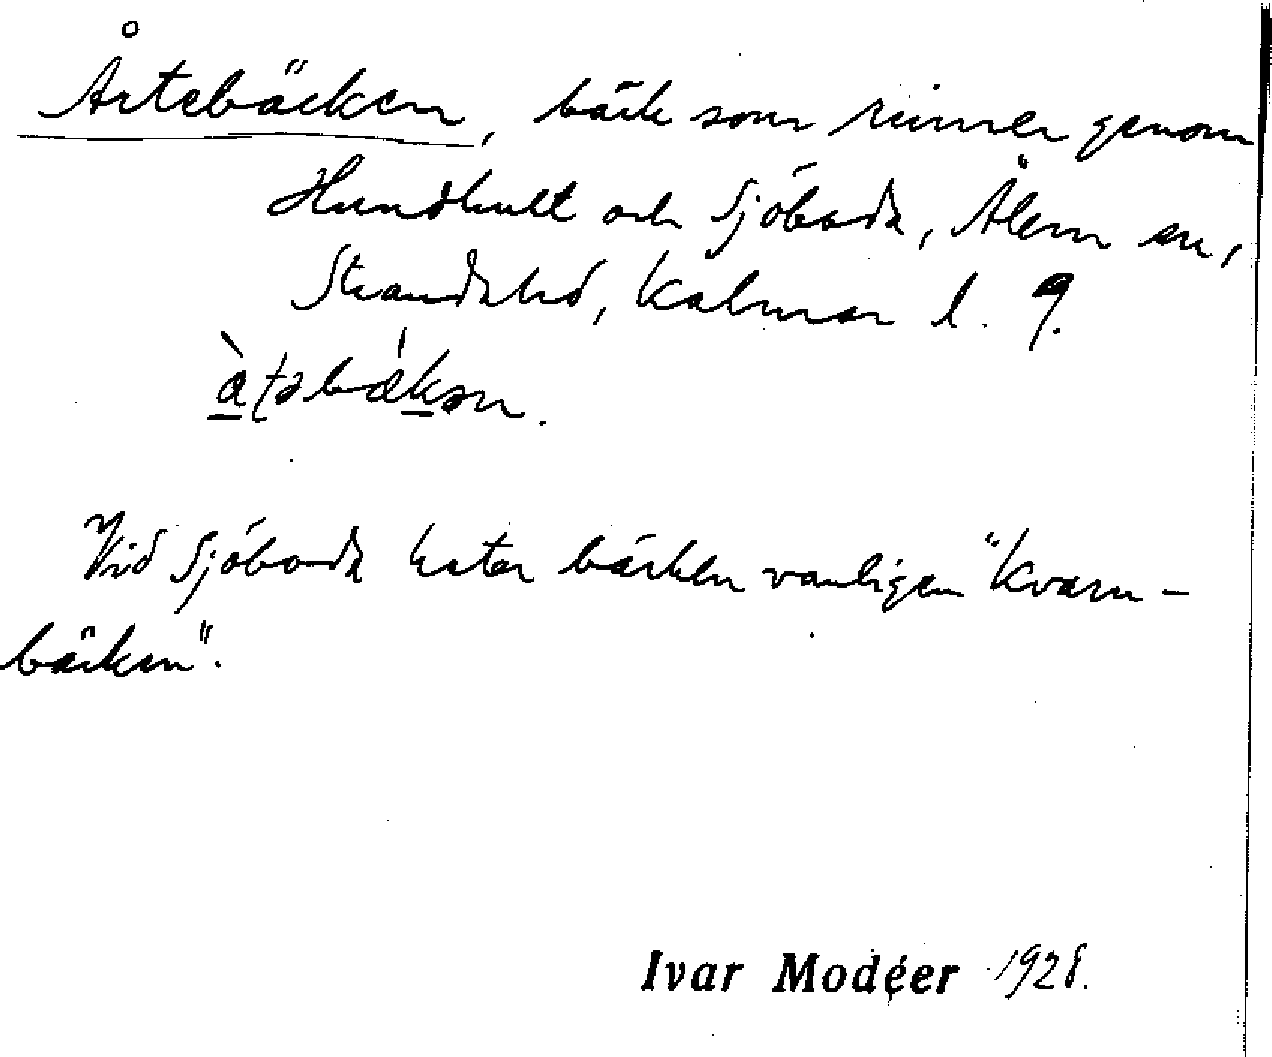 Årtebäcken, bäck som rinner genom
Hundhult och Sjöboda, Ålem sn,
Strandahd, Kalmar l.
Vid Sjöboda kallas bäcken vanligen "Kvarn-
bäcken".
Ivar Modéer 1928.